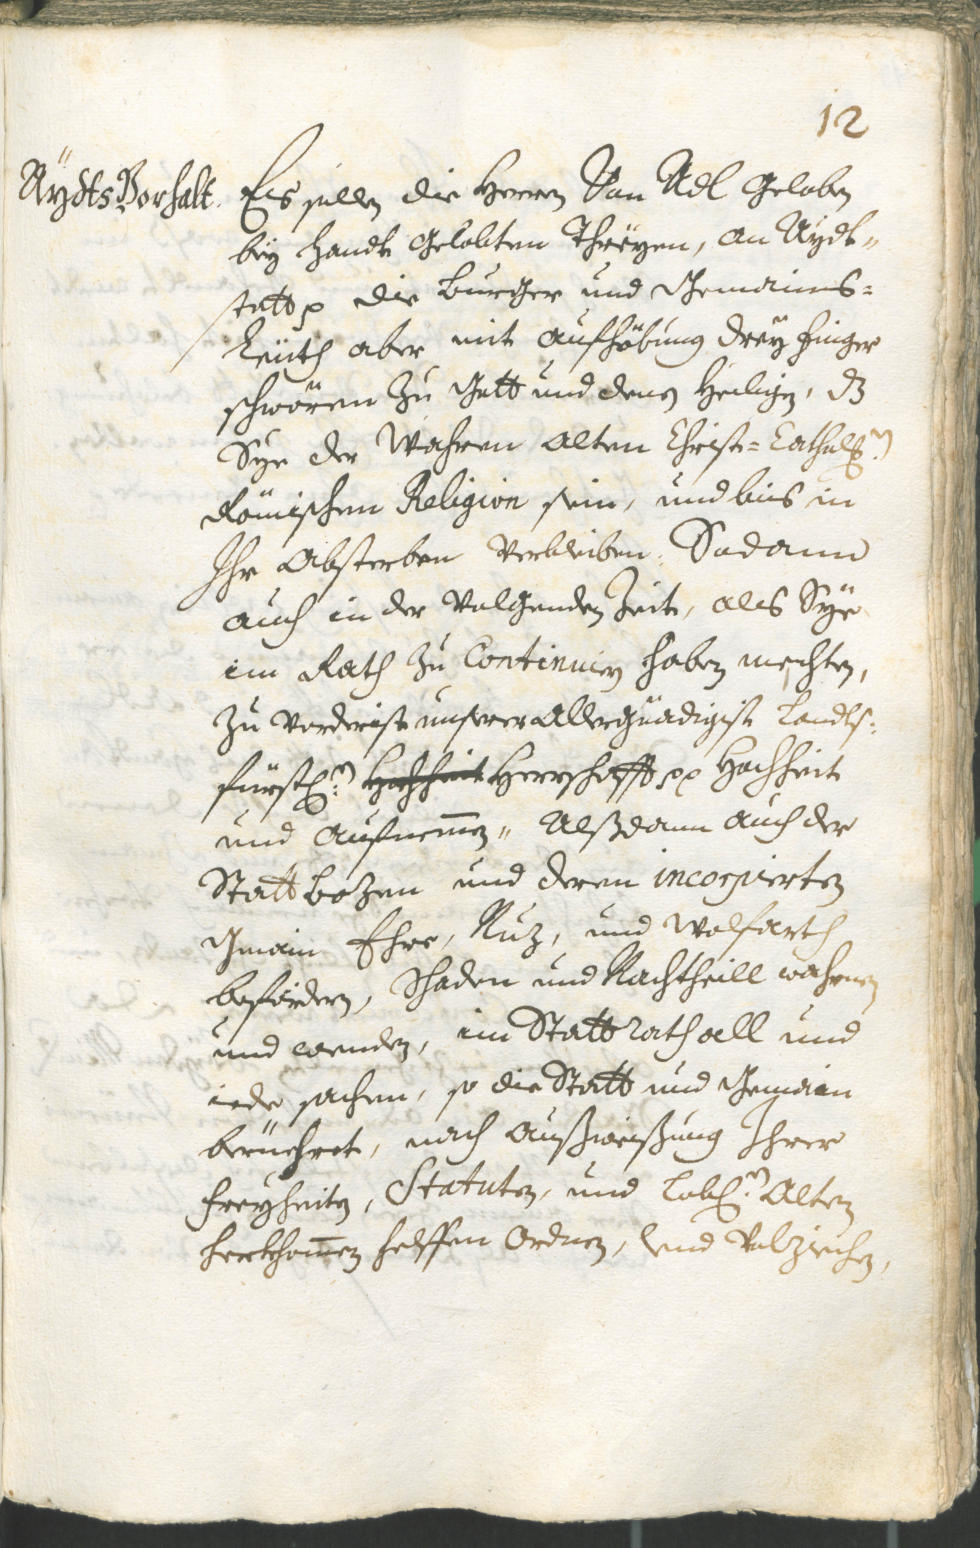 12
Aÿdts Vorhalt.
Es sollen die Herren Von Adl Geloben
beÿ handt Gelobten Threÿen, an Aÿdts„
statt p die burger und Gemains=
Leüth aber mit aufhöbung dreÿ finger
schwören zu Gott und denen Heiligen, dz
Sÿe der Wahren alten Christ= Cathol:n
Römischen Religion sein, und bis in
Ihr Absterben Verbleiben. Sodann
auch in der Volgenden Zeit, als Sÿe
im Rath zu Continuiern haben mechten,
zu Vorderist unserer Allergnädigist Landts=
fürstl:n Hochheit Herrschafft pp Hochheit
und Aufnemmen„ Alßdann auch der
Statt Bozen und deren incorpierten
Gmain Ehre, Nuz, und Wolfarth
befürdern, Schaden und Nachtheill wahrnen
und wenden, im Stattrath all und
iede sachen, so die Statt und Gemain
berüehret, nach Außweißung Ihrer
freÿheiten, Statuten, und Lobl:n Alten
herkhommen helffen Ordnen, und Volziechen,